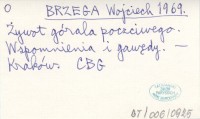 O BRZEGA Wojciech 1969.
Żywot górala poczciwego.
Wspomnienia i gawędy. —
Kraków. CBG
DT/006/0925